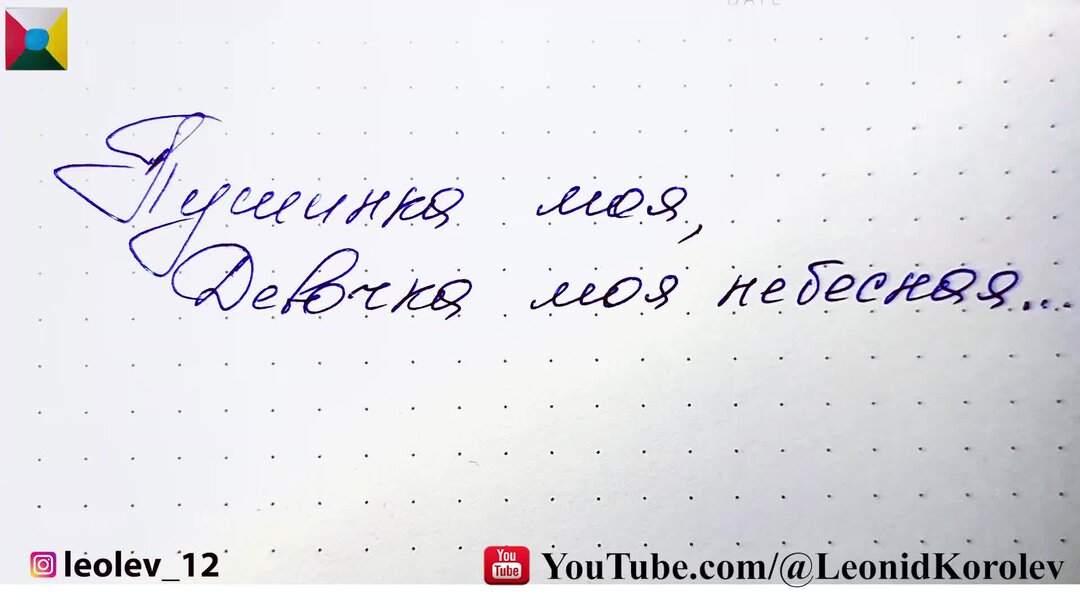 DATE
Пушинка моя,
Девочка моя небесная...
leolev_12
You Tube YouTube.com/@LeonidKorolev